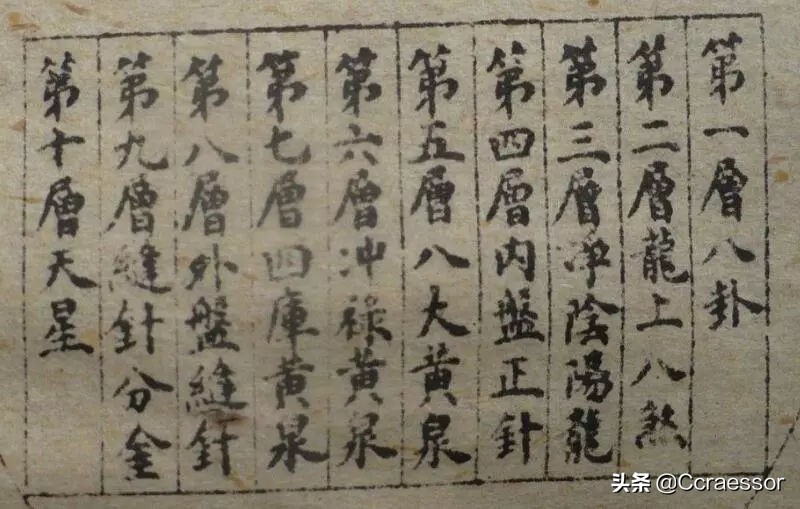 第一層八卦
第二層龍上八煞
第三層淨陰陽龍
第四層內盤正針
第五層八大黃泉
第六層冲祿黃泉
第七層四庫黃泉
第八層外盤縫針
第九層縫針分金
第十層天星
头条 @Ccraessor